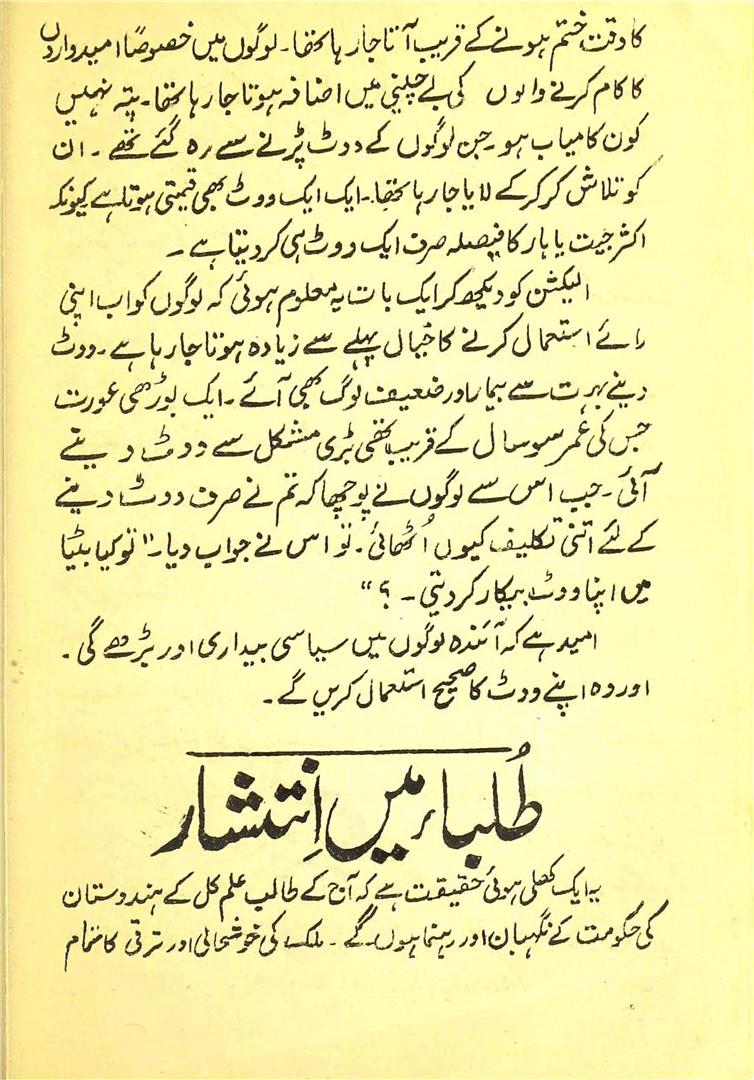 کا وقت ختم ہونے کے قریب آتا جا رہا تھا۔ لوگوں میں خصوصاً امیدواروں
کا کام کرنے والوں کی بے چینی میں اضافہ ہوتا جا رہا تھا۔ پتہ نہیں
کون کامیاب ہو۔ جن لوگوں کے ووٹ پڑنے سے رہ گئے تھے۔ ان
کو تلاش کر کر کے لایا جا رہا تھا۔ ایک ایک ووٹ بھی قیمتی ہوتا ہے کیونکہ
اکثر جیت یا ہار کا فیصلہ صرف ایک ووٹ ہی کر دیتا ہے۔
الیکشن کو دیکھ کر ایک بات یہ معلوم ہوئی کہ لوگوں کو اب اپنی
رائے استعمال کرنے کا خیال پہلے سے زیادہ ہوتا جا رہا ہے۔ ووٹ
دینے بہت سے بیمار اور ضعیف لوگ بھی آئے۔ ایک بوڑھی عورت
جس کی عمر سو سال کے قریب تھی بڑی مشکل سے ووٹ دینے
آئی۔ جب اس سے لوگوں نے پوچھا کہ تم نے صرف ووٹ دینے
کے لئے اتنی تکلیف کیوں اُٹھائی۔ تو اس نے جواب دیا۔ "تو کیا بیٹا
میں اپنا ووٹ بیکار کر دیتی۔ ؟"
امید ہے کہ آئندہ لوگوں میں سیاسی بیداری اور بڑھے گی۔
اور وہ اپنے ووٹ کا صحیح استعمال کریں گے۔
طُلباء میں اِنتشار
یہ ایک کھلی ہوئی حقیقت ہے کہ آج کے طالب علم کل کے ہندوستان
کی حکومت کے نگہبان اور رہنما ہوں گے۔ ملک کی خوشحالی اور ترقی کا تمام